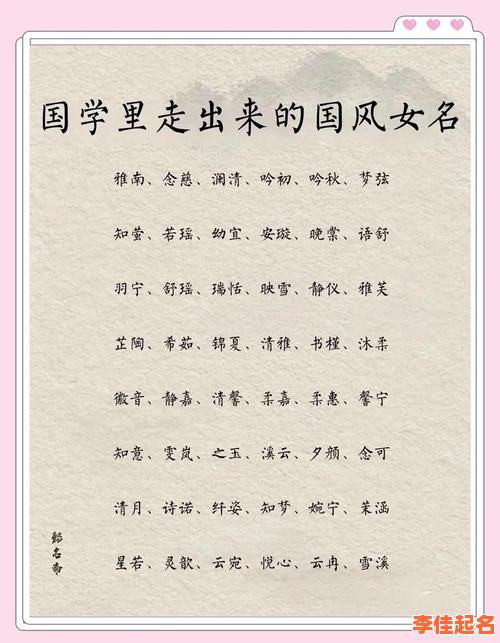 国学里走出来的国风女名
雅南、念慈、澜清、吟初、吟秋、梦弦
知萤、若瑶、幼宜、安璇、晚棠、语舒
羽宁、舒瑶、瑞恬、映雪、静仪、雅芙
芷陶、希茹、锦夏、清雅、书槿、沐柔
徽音、静嘉、清馨、柔嘉、柔惠、馨宁
知意、雯岚、之玉、溪云、夕颜、念可
清月、诗诺、纤姿、知梦、婉宁、茉涵
星若、灵歆、云宛、悦心、云冉、雪溪
懿名斋
李佳起名